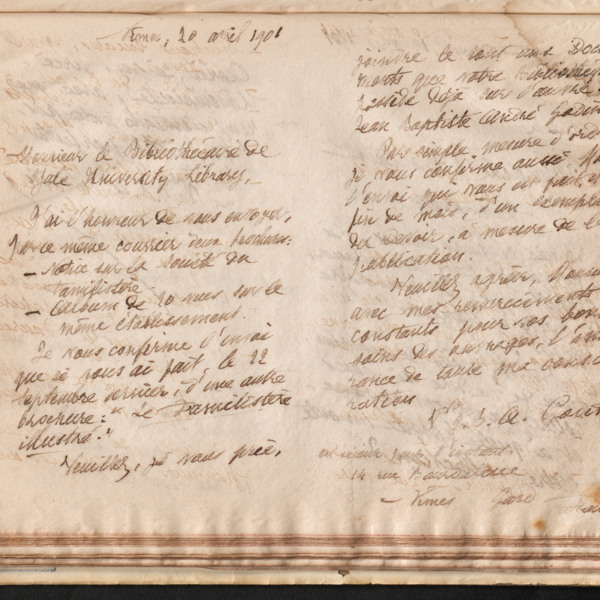 Nimes, 20 avril 1901
Monsieur le Bibliothécaire de
Yale University Library,
J'ai l'honneur de vous envoyer,
par ce même courrier deux brochures:
– Notice sur la Société du
Familistère
– Album de 20 vues sur le
même établissement.
Je vous confirme l'envoi
que je vous ai fait, le 22
septembre dernier, d'une autre
brochure: "Le Familistère
illustré."
Veuillez, je vous prie,
joindre le tout aux Docu
ments que votre Bibliothèque
possède déjà sur l'œuvre
Jean Baptiste André Godin
Par simple mesure d'
je vous confirme aussi
l'envoi que vous est fait,
fin de mois, d'un exemplaire
du Devoir, à mesure de
publication.
Veuillez agréer,
avec mes remerciements
constants pour vos bons
soins des ouvrages, l'
rance de toute ma consi
ration
14 rue Bourdaloue
– Nimes Gard –